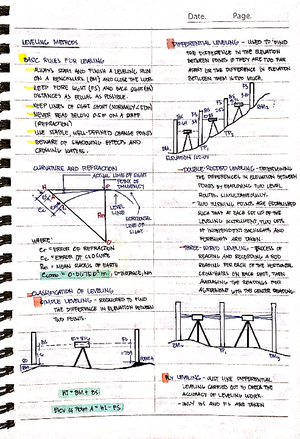 Date. Page.
LEVELING METHODS
BASIC RULES FOR LEVELING
ALWAYS START AND FINISH A LEVELING RUN
ON A BENCHMARK (BM) AND CLOSE THE LOOP
KEEP FORE SIGHT (FS) AND BACK SIGHT (BS)
DISTANCES AS EQUAL AS POSSIBLE.
KEEP LINES OF SIGHT SHORT
NEVER READ BELOW 0.5 M ON A STAFF
(REFRACTION)
USE STABLE, WELL-DEFINED CHANGE POINTS
BEWARE OF SHADOWING EFFECTS AND
CROSSING WATERS.
CURVATURE AND REFRACTION
ACTUAL LINE OF SIGHT
POINT OF TANGENCY
LEVEL
LINE
HORIZONTAL
LINE OF
SIGHT
Rm
WHERE:
= ERROR OF REFRACTION
= ERROR OF
Rm = MEAN RADIUS OF EARTH
DISTANCE, KM
CLASSIFICATION OF LEVELING
SIMPLE LEVELING - REQUIRED TO FIND
THE DIFFERENCE IN ELEVATION BETWEEN
TWO POINTS.
BS
FS
BM
HI = BM + BS
ELEV OF POINT A = HI - FS
DIFFERENTIAL LEVELING - USED TO FIND
THE DIFFERENCE IN THE ELEVATION
BETWEEN POINTS IF THEY ARE TOO FAR
APART OR THE DIFFERENCE IN ELEVATION
BETWEEN THEM IS TOO MUCH.
BS
FS
BM
TP
ELEVATION
DOUBLE-RODDED LEVELING - DETERMINING
THE DIFFERENCES IN ELEVATION BETWEEN
POINTS BY EMPLOYING TWO LEVEL
ROUTES SIMULTANEOUSLY.
- TWO TURNING POINTS ARE ESTABLISHED
SUCH THAT AT EACH SET UP OF THE
LEVELING INSTRUMENT, TWO SETS
OF INDEPENDENT BACKSIGHTS AND
FORESIGHTS ARE TAKEN.
THREE-WIRED LEVELING - PROCESS OF
READING AND RECORDING A ROD
READING FOR EACH OF THE HORIZONTAL
CROSS-HAIRS ON EACH SIGHT, THEN
AVERAGING THE READINGS FOR
AGREEMENT WITH THE CENTER READING
FLY LEVELING - JUST LIKE DIFFERENTIAL
LEVELING CARRIED OUT TO CHECK THE
ACCURACY OF LEVELING WORK.
- ONLY BS AND FS ARE TAKEN